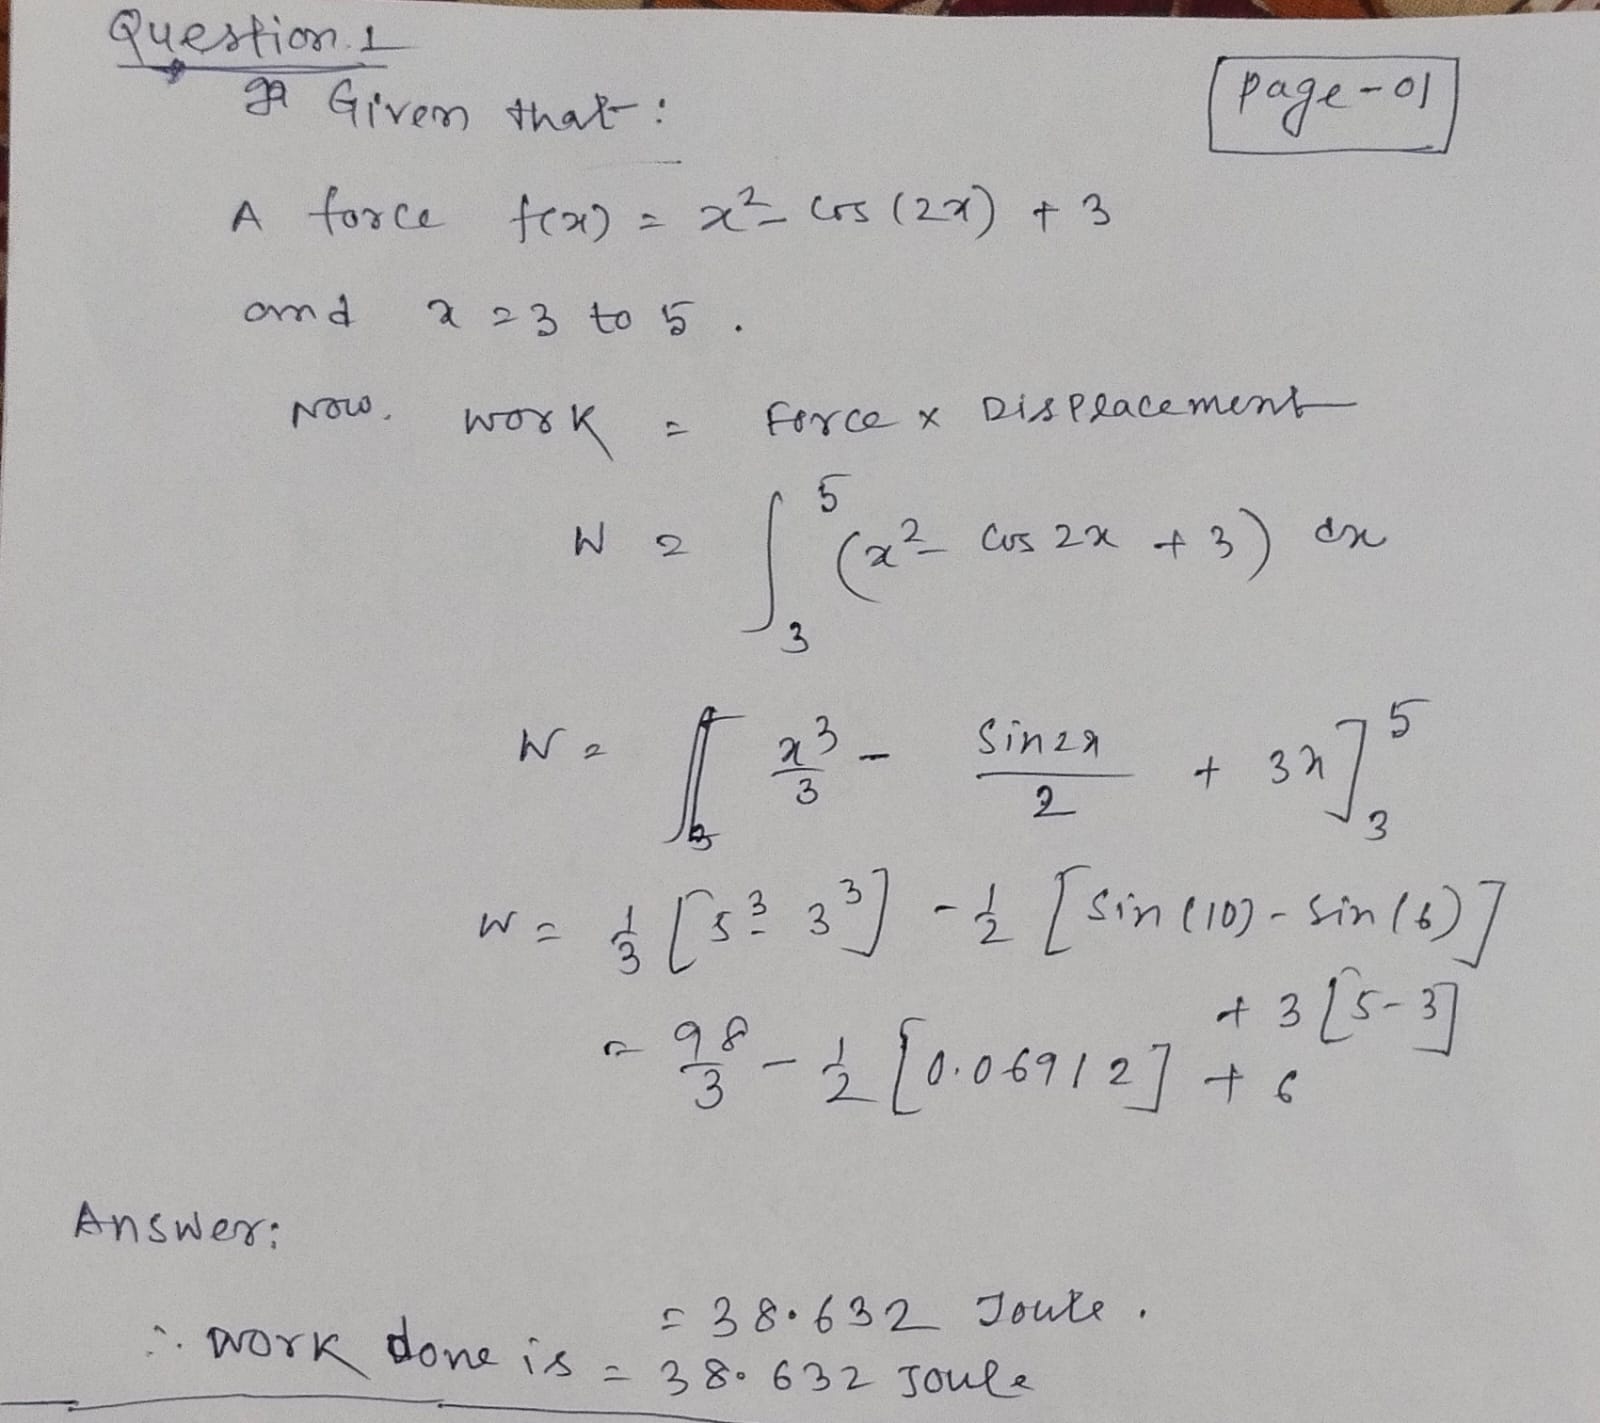 Question 1
Page-01
Given that:
A force f(x) = x² - cos(2x) + 3
and x = 3 to 5.
Now. Work = Force x Displacement
W = ∫₃⁵ (x² - cos 2x + 3) dx
W = [ x³/3 - Sin2x/2 + 3x ]₃⁵
W = 1/3 [5³ - 3³] - 1/2 [Sin(10) - Sin(6)]
+ 3 [5-3]
= 98/3 - 1/2 [0.06912] + 6
Answer:
= 38.632 Joule.
∴ Work done is = 38.632 Joule